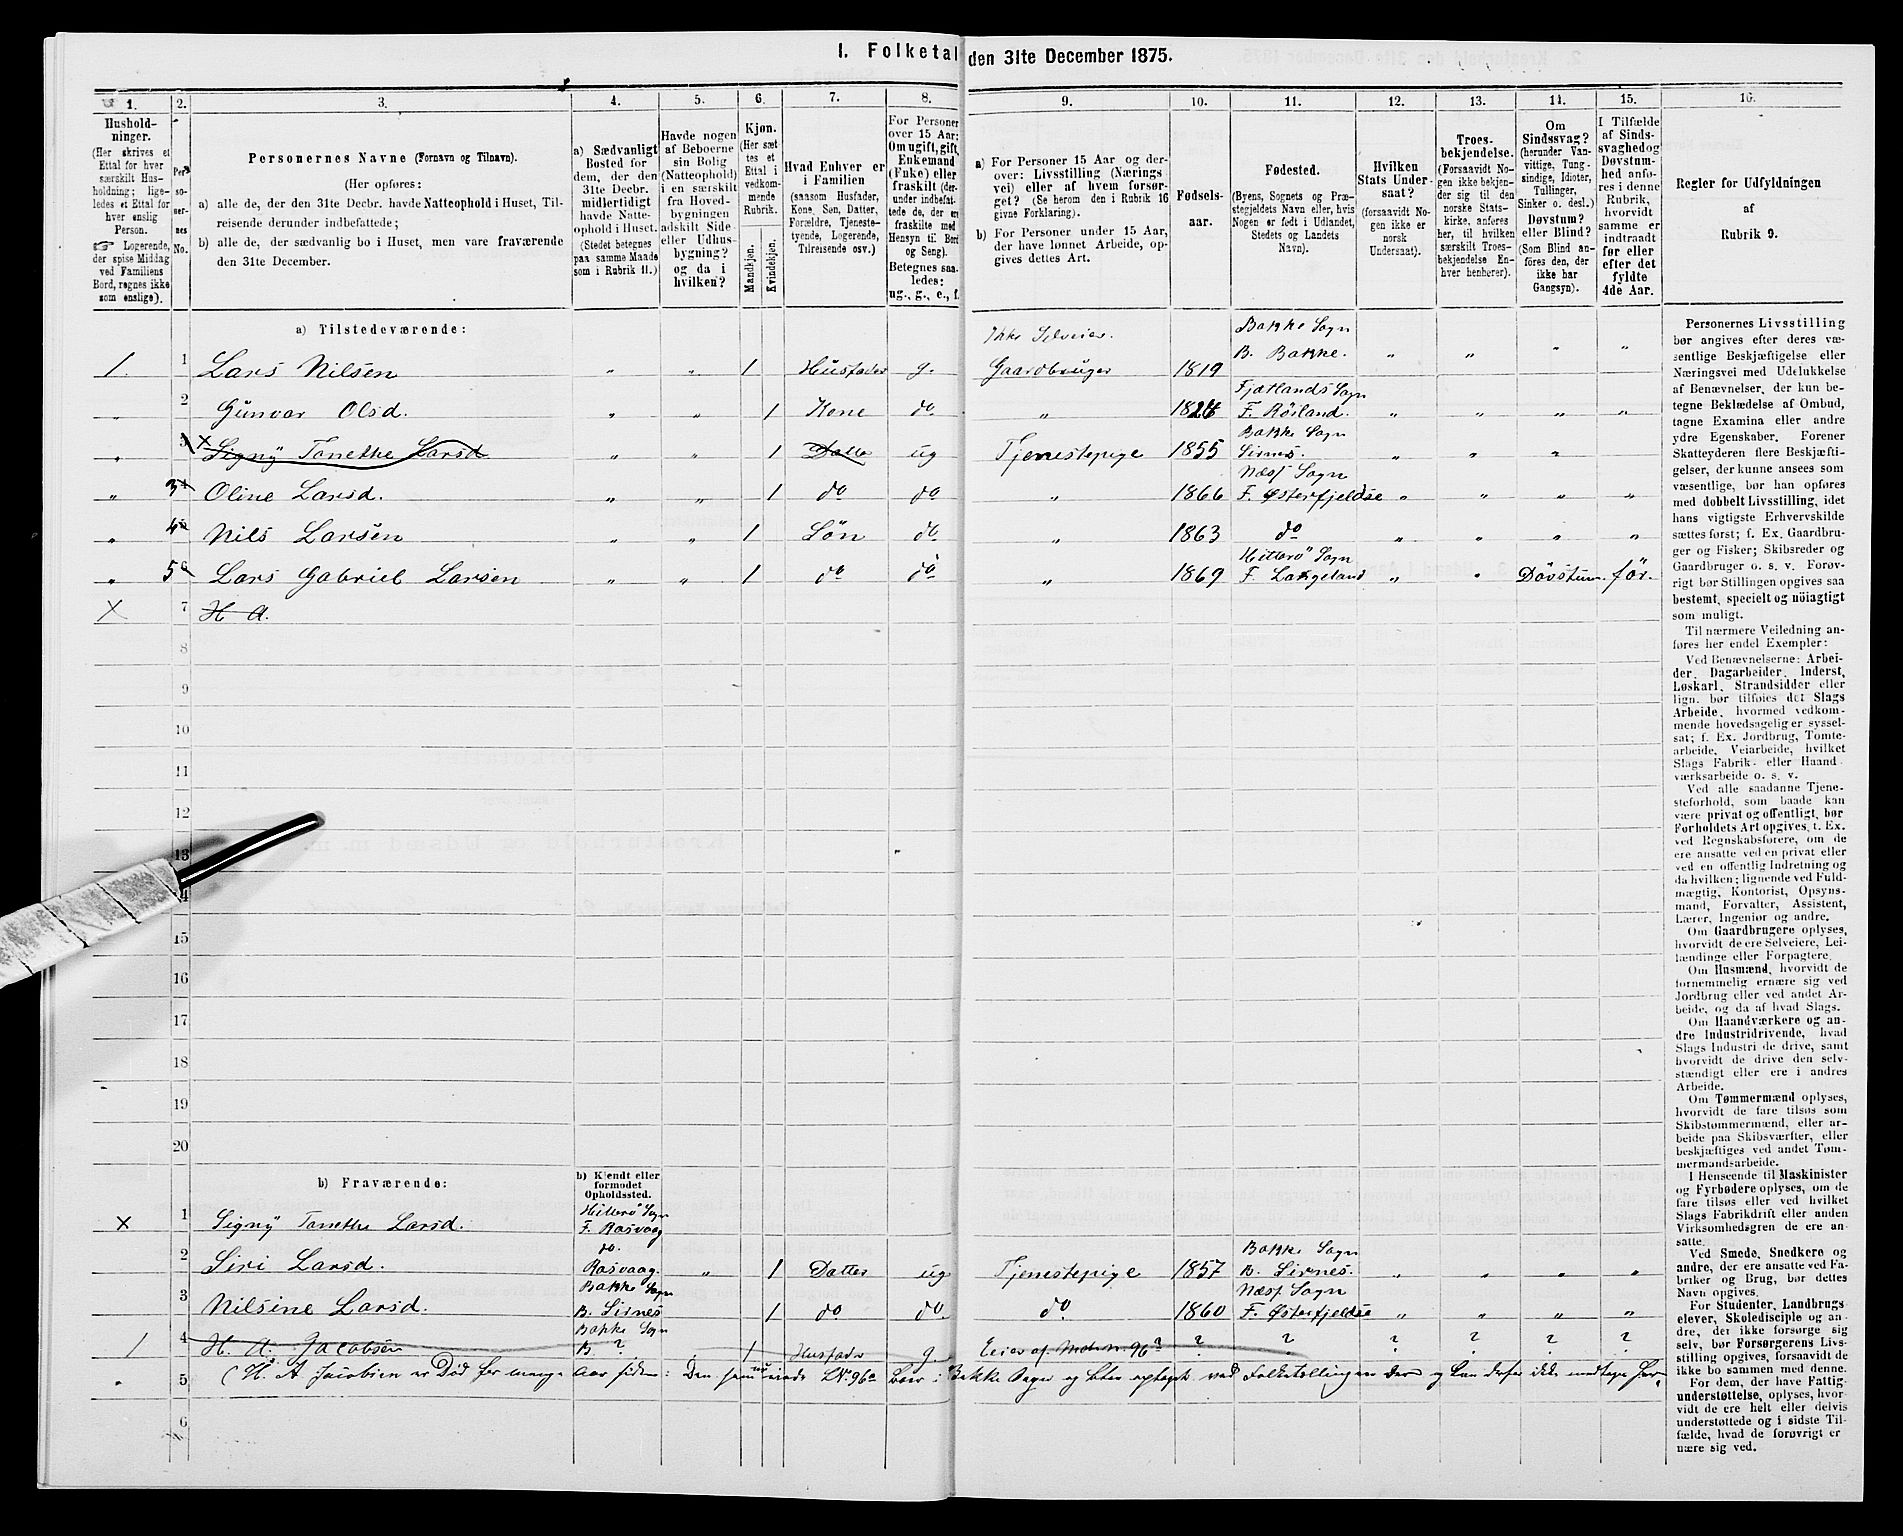 I. Folketal den 31te December 1875.
1. 2. 3. 4. 5. 6. 7. 8. 9. 10. 11. 12. 13. 14. 15. 16.
Hushold-
ninger.
(Her skrives et
Ettal for hver
særskilt Hus-
holdning; lige-
ledes et Ettal for
hver enslig
Person.
☞ Logerende,
der spise Middag
ved Familiens
Bord, regnes ikke
som enslige).
Per-
so-
ner-
nes
No.
Personernes Navne (Fornavn og Tilnavn).
(Her opføres:
a) alle de, der den 31te Decbr. havde Natteophold i Huset, Til-
reisende derunder indbefattede;
b) alle de, der sædvanlig bo i Huset, men vare fraværende
den 31te December.
a) Sædvanligt
Bosted for
dem, der den
31te Decbr.
midlertidigt
havde Natte-
ophold i Huset.
(Stedet betegnes
paa samme Maade
som i Rubrik 11.)
Havde nogen
af Beboerne
sin Bolig
(Natteophold)
i en særskilt
fra Hoved-
bygningen
adskilt Side-
eller Udhus-
bygning?
og da i
hvilken?
Kjøn.
(Her sæt-
tes et
Ettal i
vedkom-
mende
Rubrik.
Mandkjøn.
Kvindekjøn.
Hvad Enhver er
i Familien
(saasom Husfader,
Kone, Søn, Datter,
Forældre, Tjeneste-
tyende, Logerende,
Tilreisende osv.)
For Personer
over 15 Aar:
Om ugift, gift,
Enkemand
(Enke) eller
fraskilt (der-
under indbefat-
tede de, der ere
fraskilte med
Hensyn til Bord
og Seng).
Betegnes saa-
ledes:
ug., g., e., f.
a) For Personer 15 Aar og der-
over: Livsstilling (Nærings-
vei) eller af hvem forsør-
get? (Se herom den i Rubrik 16
givne Forklaring).
b) For Personer under 15 Aar,
der have lønnet Arbeide, op-
gives dettes Art.
Fødsels-
aar.
Fødested.
(Byens, Sognets og Præ-
stegjeldets Navn eller, hvis
Nogen er født i Udlandet,
Stedets og Landets
Navn).
Hvilken
Stats Under-
saat?
(forsaavidt No-
gen ikke er
norsk
Undersaat).
Troes-
bekjendelse.
(Forsaavidt No-
gen ikke bekjen-
der sig til den
norske Stats-
kirke, anføres
her, til hvilken
særskilt Troes-
bekjendelse En-
hver henhører).
Om
Sindssvag?
(herunder Van-
vittige, Tung-
sindige, Idioter,
Tullinger,
Sinker o. desl.)
Døvstum?
eller Blind?
(Som Blind an-
føres den, der
ikke har
Gangsyn).
I Tilfælde
af Sinds-
svaghed og
Døvstum-
hed anfø-
res i denne
Rubrik,
hvorvidt
samme er
indtraadt
før eller
efter det
fyldte
4de Aar.
Regler for Udfyldningen
af
Rubrik 9.
a) Tilstedeværende:
Ikke Selveier. Bakke Sogn
1. 1 Lars Nilsen " " 1 Husfader g. Gaardbruger 1819 B. Bakke. " " " "
Fjotlands Sogn
" 2 Gunvor Olsd. " " 1 Kone do " 1824 F. Röiland. " " " "
Bakke Sogn
" x Signy Tonethe Larsd " " 1 Datter ug Tjenestepige 1855 Sirnes. " " "
Næss Sogn
" 3 4 Oline Larsd. " " 1 do do " 1866 F. Østerfjeldse " " " "
" 4 5 Nils Larsen " " 1 Sön do " 1863 do " " " "
Hitterö Sogn
" 5 6 Lars Gabriel Larsen " " 1 do do " 1869 F. Lakgeland " " Dövstum. för.
X 7 H A.
8
9
10
11
12
13
14
15
16
17
18
19
20
b) Fraværende:
b) Kjendt eller
formodet
Opholdssted.
Hitterö Sogn
x 1 Signy Tonethe Larsd. F. Rasvaag
do.
2 Siri Larsd. Rasvaag. " 1 Datter ug Tjenestepige 1857 Bakke Sogn B. Sirnes. " " " "
Bakke Sogn
3 Nilsine Larsd. B. Sirnes 1 do do do 1860 Næss Sogn F. Østerfjeldse " " " "
Bakke Sogn
1 4 H. A. Jacobsen B. ? 1 Husfader g. Eier af Matr. n. 96a ? ? ? ? ? ?
" 5 (H. A Jacobsen er Död for mange Aar siden: Den som nu eiede LNo 96a boer i Bakke Sogn og blev optagt ved Folketellingen der og kan derfor ikke medtages her
6
Personernes Livsstilling
bør angives efter deres væ-
sentlige Beskjæftigelse eller
Næringsvei med Udelukkelse
af Benævnelser, der kun be-
tegne Beklædelse af Ombud,
tagne Examina eller andre
ydre Egenskaber. Forener
Skatteyderen flere Beskjæfti-
gelser, der kunne ansees som
væsentlige, bør han opføres
med dobbelt Livsstilling, idet
hans vigtigste Erhvervskilde
sættes først; f. Ex. Gaardbru-
ger og Fisker; Skibsreder og
Gaardbruger o. s. v. Forøv-
rigt bør Stillingen opgives saa
bestemt, specielt og nöiagtigt
som muligt.
Til nærmere Veiledning an-
føres her endel Exempler:
Ved Benævnelserne: Arbei-
der, Dagarbeider, Inderst,
Løskarl, Strandsidder eller
lign. bør tilføies det Slags
Arbeide, hvormed vedkom-
mende hovedsagelig er syssel-
sat; f. Ex. Jordbrug, Tomte-
arbeide, Veiarbeide, hvilket
Slags Fabrik- eller Haand-
værksarbeide o. s. v.
Ved alle saadanne Tjene-
steforhold, som baade kan
være privat og offentligt, bør
Forholdets Art opgives, t. Ex.
ved Regnskabsførere, om de
ere ansatte ved en privat eller
ved en offentlig Indretning og
da hvilken; lignende ved Fuld-
mægtig, Kontorist, Opsyns-
mand, Forvalter, Assistent,
Lærer, Ingeniør og andre.
Om Gaardbrugere oplyses,
hvorvidt de ere Selveiere, Lei-
lændinge eller Forpagtere.
Om Husmænd, hvorvidt de
fornemmelig ernære sig ved
Jordbrug eller ved andet Ar-
beide, og da af hvad Slags.
Om Haandværkere og an-
dre Industridrivende, hvad
Slags Industri de drive, samt
hvorvidt de drive den selv-
stændigt eller ere i andres
Arbeide.
Om Tømmermænd oplyses,
hvorvidt de fare tilsøs som
Skibstømmermænd, eller ar-
beide paa Skibsværfter, eller
beskjæftiges ved andet Tøm-
mermandsarbeide.
I Henseende til Maskinister
og Fyrbødere oplyses, om de
fare tilsøs eller ved hvilket
Slags Fabrikdrift eller anden
Virksomhedsgren de ere an-
satte.
Ved Smede, Snedkere og
andre, der ere ansatte ved Fa-
briker og Brug, bør dettes
Navn opgives.
For Studenter, Landbrugs-
elever, Skoledisciple og an-
dre, der ikke forsørge sig
selv, bør Forsørgerens Livs-
stilling opgives, forsaavidt de
ikke bo sammen med denne.
For dem, der have Fattig-
understøttelse, oplyses, hvor-
vidt de ere helt eller delvis
understøttede og i sidste Til-
fælde, hvad de forøvrigt er-
nære sig ved.